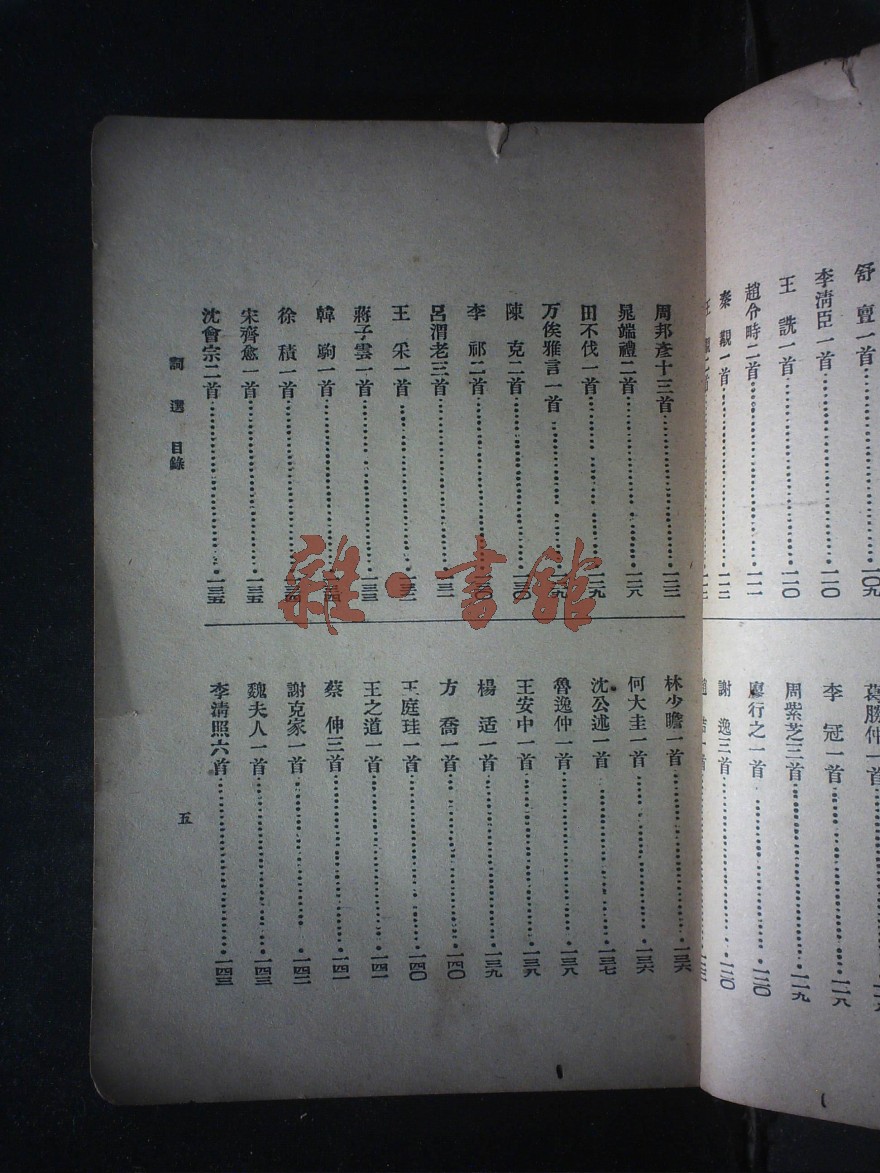 舒亶一首 一〇九
李清臣一首 一一〇
王詵一首 一一〇
趙令時二首 一一一
秦觀一首 一一二
葛勝仲一首
李冠一首 一一八
周紫芝三首 一一九
廖行之一首 一二〇
謝逸三首 一二〇
周邦彥十三首 一二二
晁端禮二首 一二八
田不伐一首 一二九
万俟雅言一首 一二九
陳克二首 一三〇
李祁二首 一三〇
呂渭老三首 一三一
王采一首 一三二
蔣子雲一首 一三三
韓駒一首 一三四
徐積一首 一三四
宋齊愈一首 一三五
沈會宗二首 一三五
林少瞻一首 一三六
何大圭一首 一三六
沈公述一首 一三七
魯逸仲一首 一三八
王安中一首 一三八
楊适一首 一三九
方喬一首 一四〇
王庭珪一首 一四〇
王之道一首 一四一
蔡伸三首 一四一
謝克家一首 一四二
魏夫人一首 一四三
李清照六首 一四三
詞選 目錄
五
雜·書館